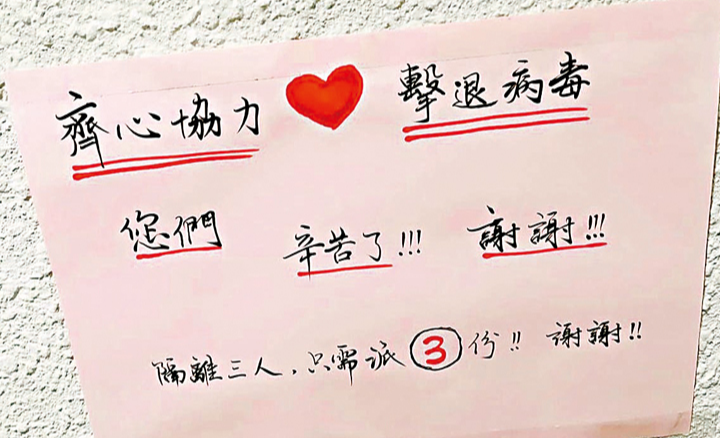 齊心協力 擊退病毒
您們 辛苦了!!! 謝謝!!!
隔離三人，只需派 3 份!! 謝謝!!